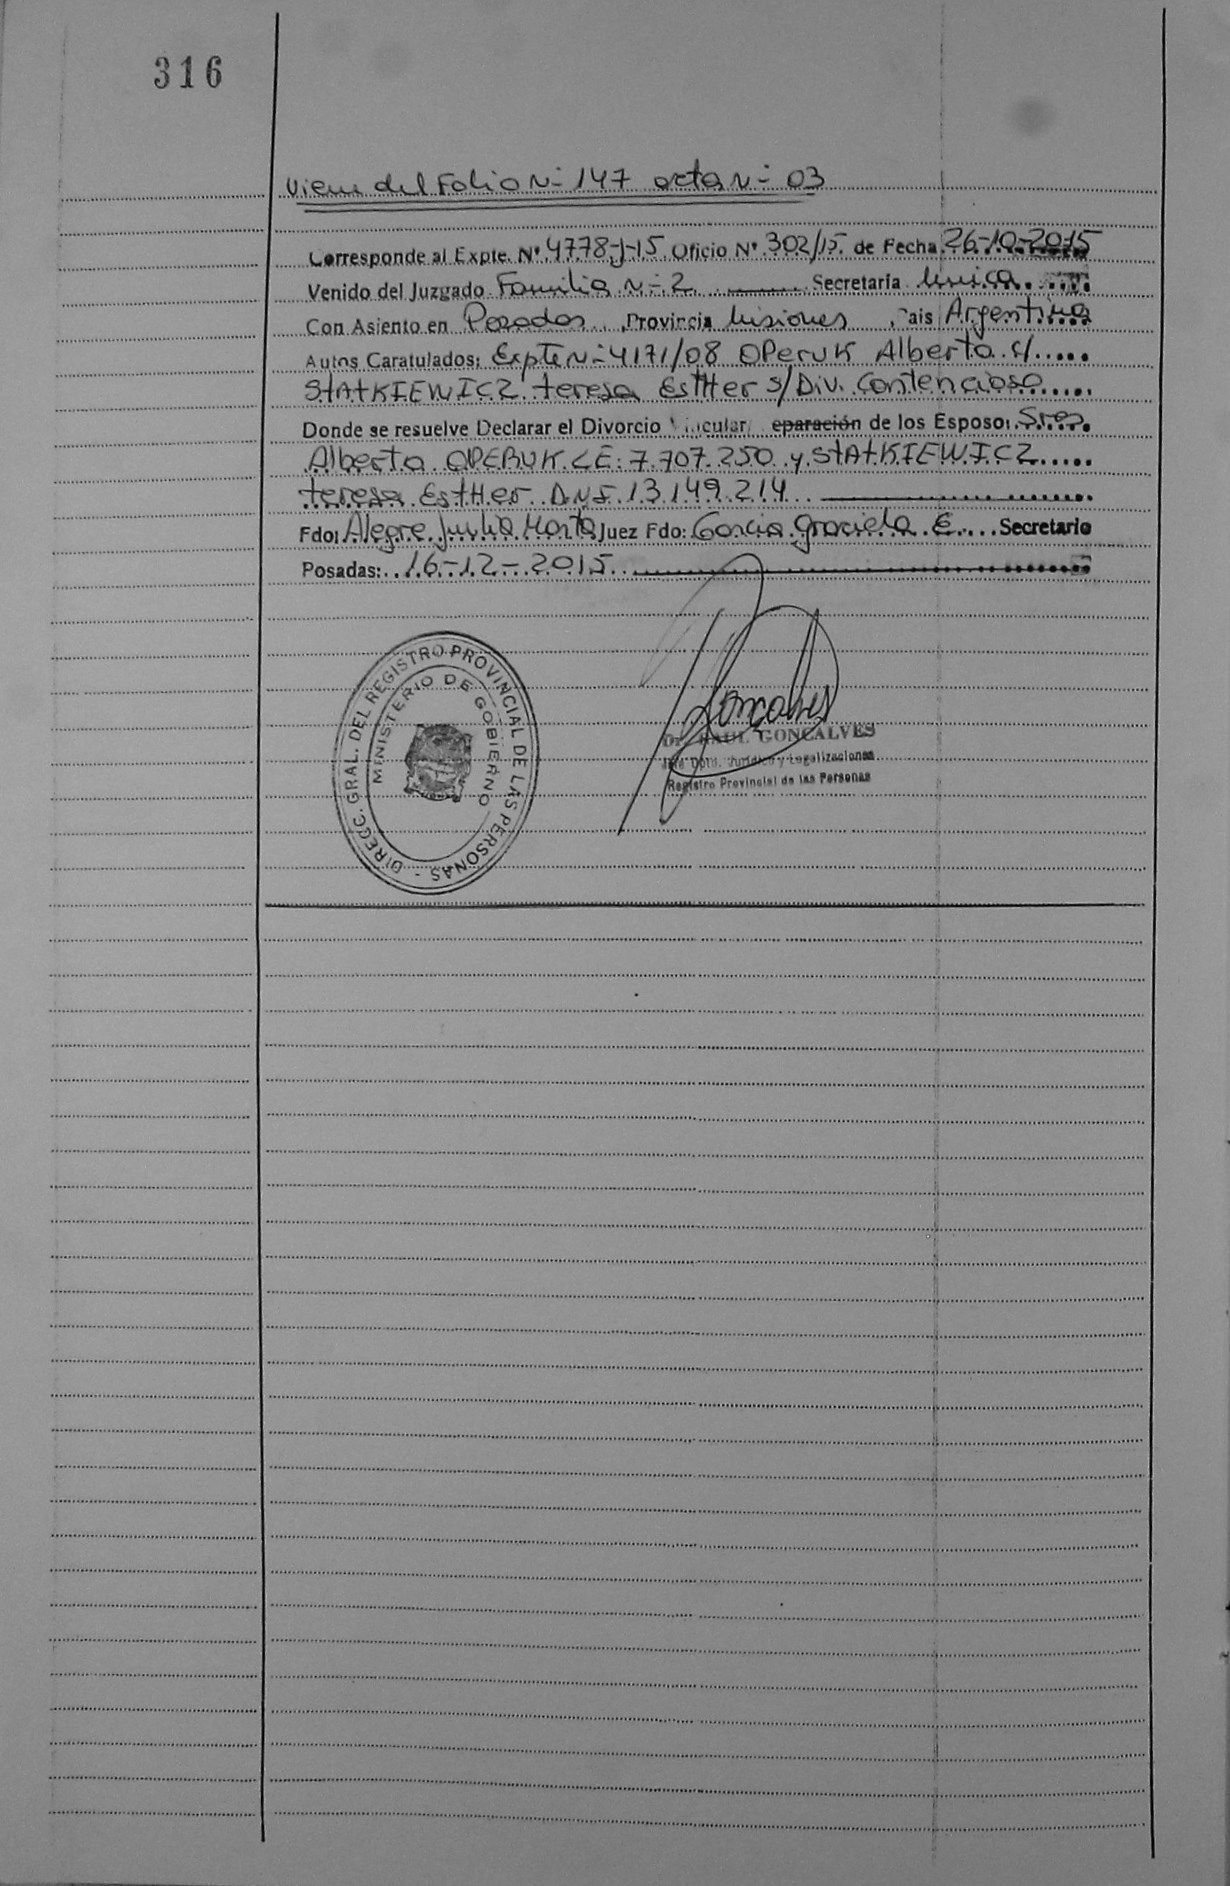 316
Viene del Folio N= 147 acta N= 03
Corresponde al Expte. Nº 4778-J-15 Oficio Nº 302/15 de Fecha 26-10-2015
Venido del Juzgado Familia N=2 Secretaría Unica
Con Asiento en Posadas Provincia Misiones Pais Argentina
Autos Caratulados: Expte N=4171/08 OPeruK Alberto c/
STAtKIEWICZ teresa EstHer s/Div. Contencioso
Donde se resuelve Declarar el Divorcio Vincular, eparación de los Esposo: Sres.
Alberto OPERUK LE: 7.707.250 y STAtKIEWICZ
teresa EstHer D.N.I. 13.149.214
Fdo: Alegre Julia Marta Juez Fdo: Garcia Graciela E. Secretario
Posadas: 16-12-2015
DIRECC. GRAL. DEL REGISTRO PROVINCIAL DE LAS PERSONAS -
MINISTERIO DE GOBIERNO
Goncalves
Dr. RAUL GONCALVES
Jefe Dpto. Jurídico y Legalizaciones
Registro Provincial de las Personas